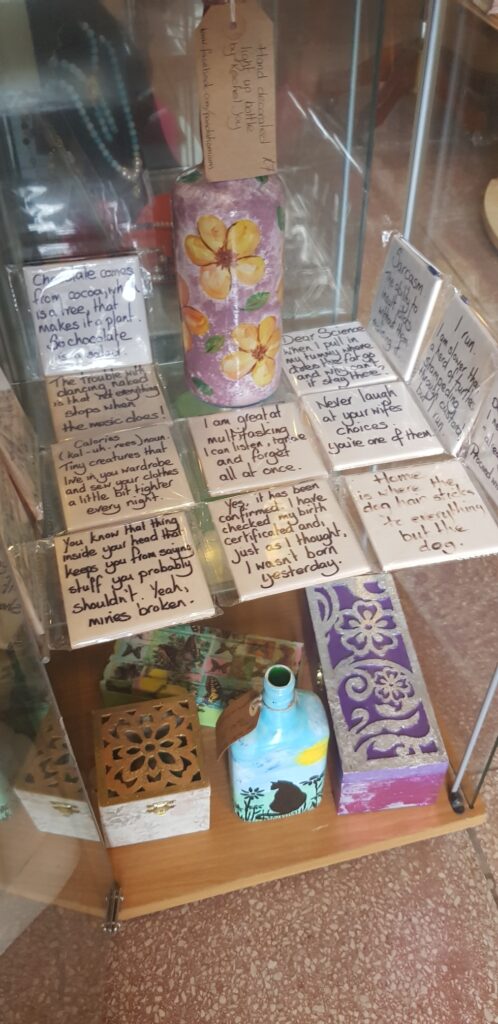 Hand decorated
light up bottle
by Rachel Joy
£7
Chocolate comes
from cocoa, which
is a tree, that
makes it a plant.
So chocolate
is a salad.
The trouble with
dancing naked
is that not everything
stops when
the music does!
Calories
(kal-uh-rees) noun.
Tiny creatures that
live in you wardrobe
and sew your clothes
a little bit tighter
every night.
You know that thing
inside your head that
keeps you from saying
stuff you probably
shouldn't. Yeah,
mines broken.
I am great at
multitasking
I can listen, ignore
and forget
all at once.
Yes, it has been
confirmed. I have
checked my birth
certificate and,
just as I thought,
I wasn't born
yesterday.
Dear Science
when I pull in
my tummy where
does the fat go
and why can't
it stay there.
Never laugh
at your wife's
choices.
you're one of them.
Home
is where the
dog hair sticks
to everything
but the
dog.
Sarcasm
The ability to
I run
I am slower than
a herd of turtles
stampeding
through